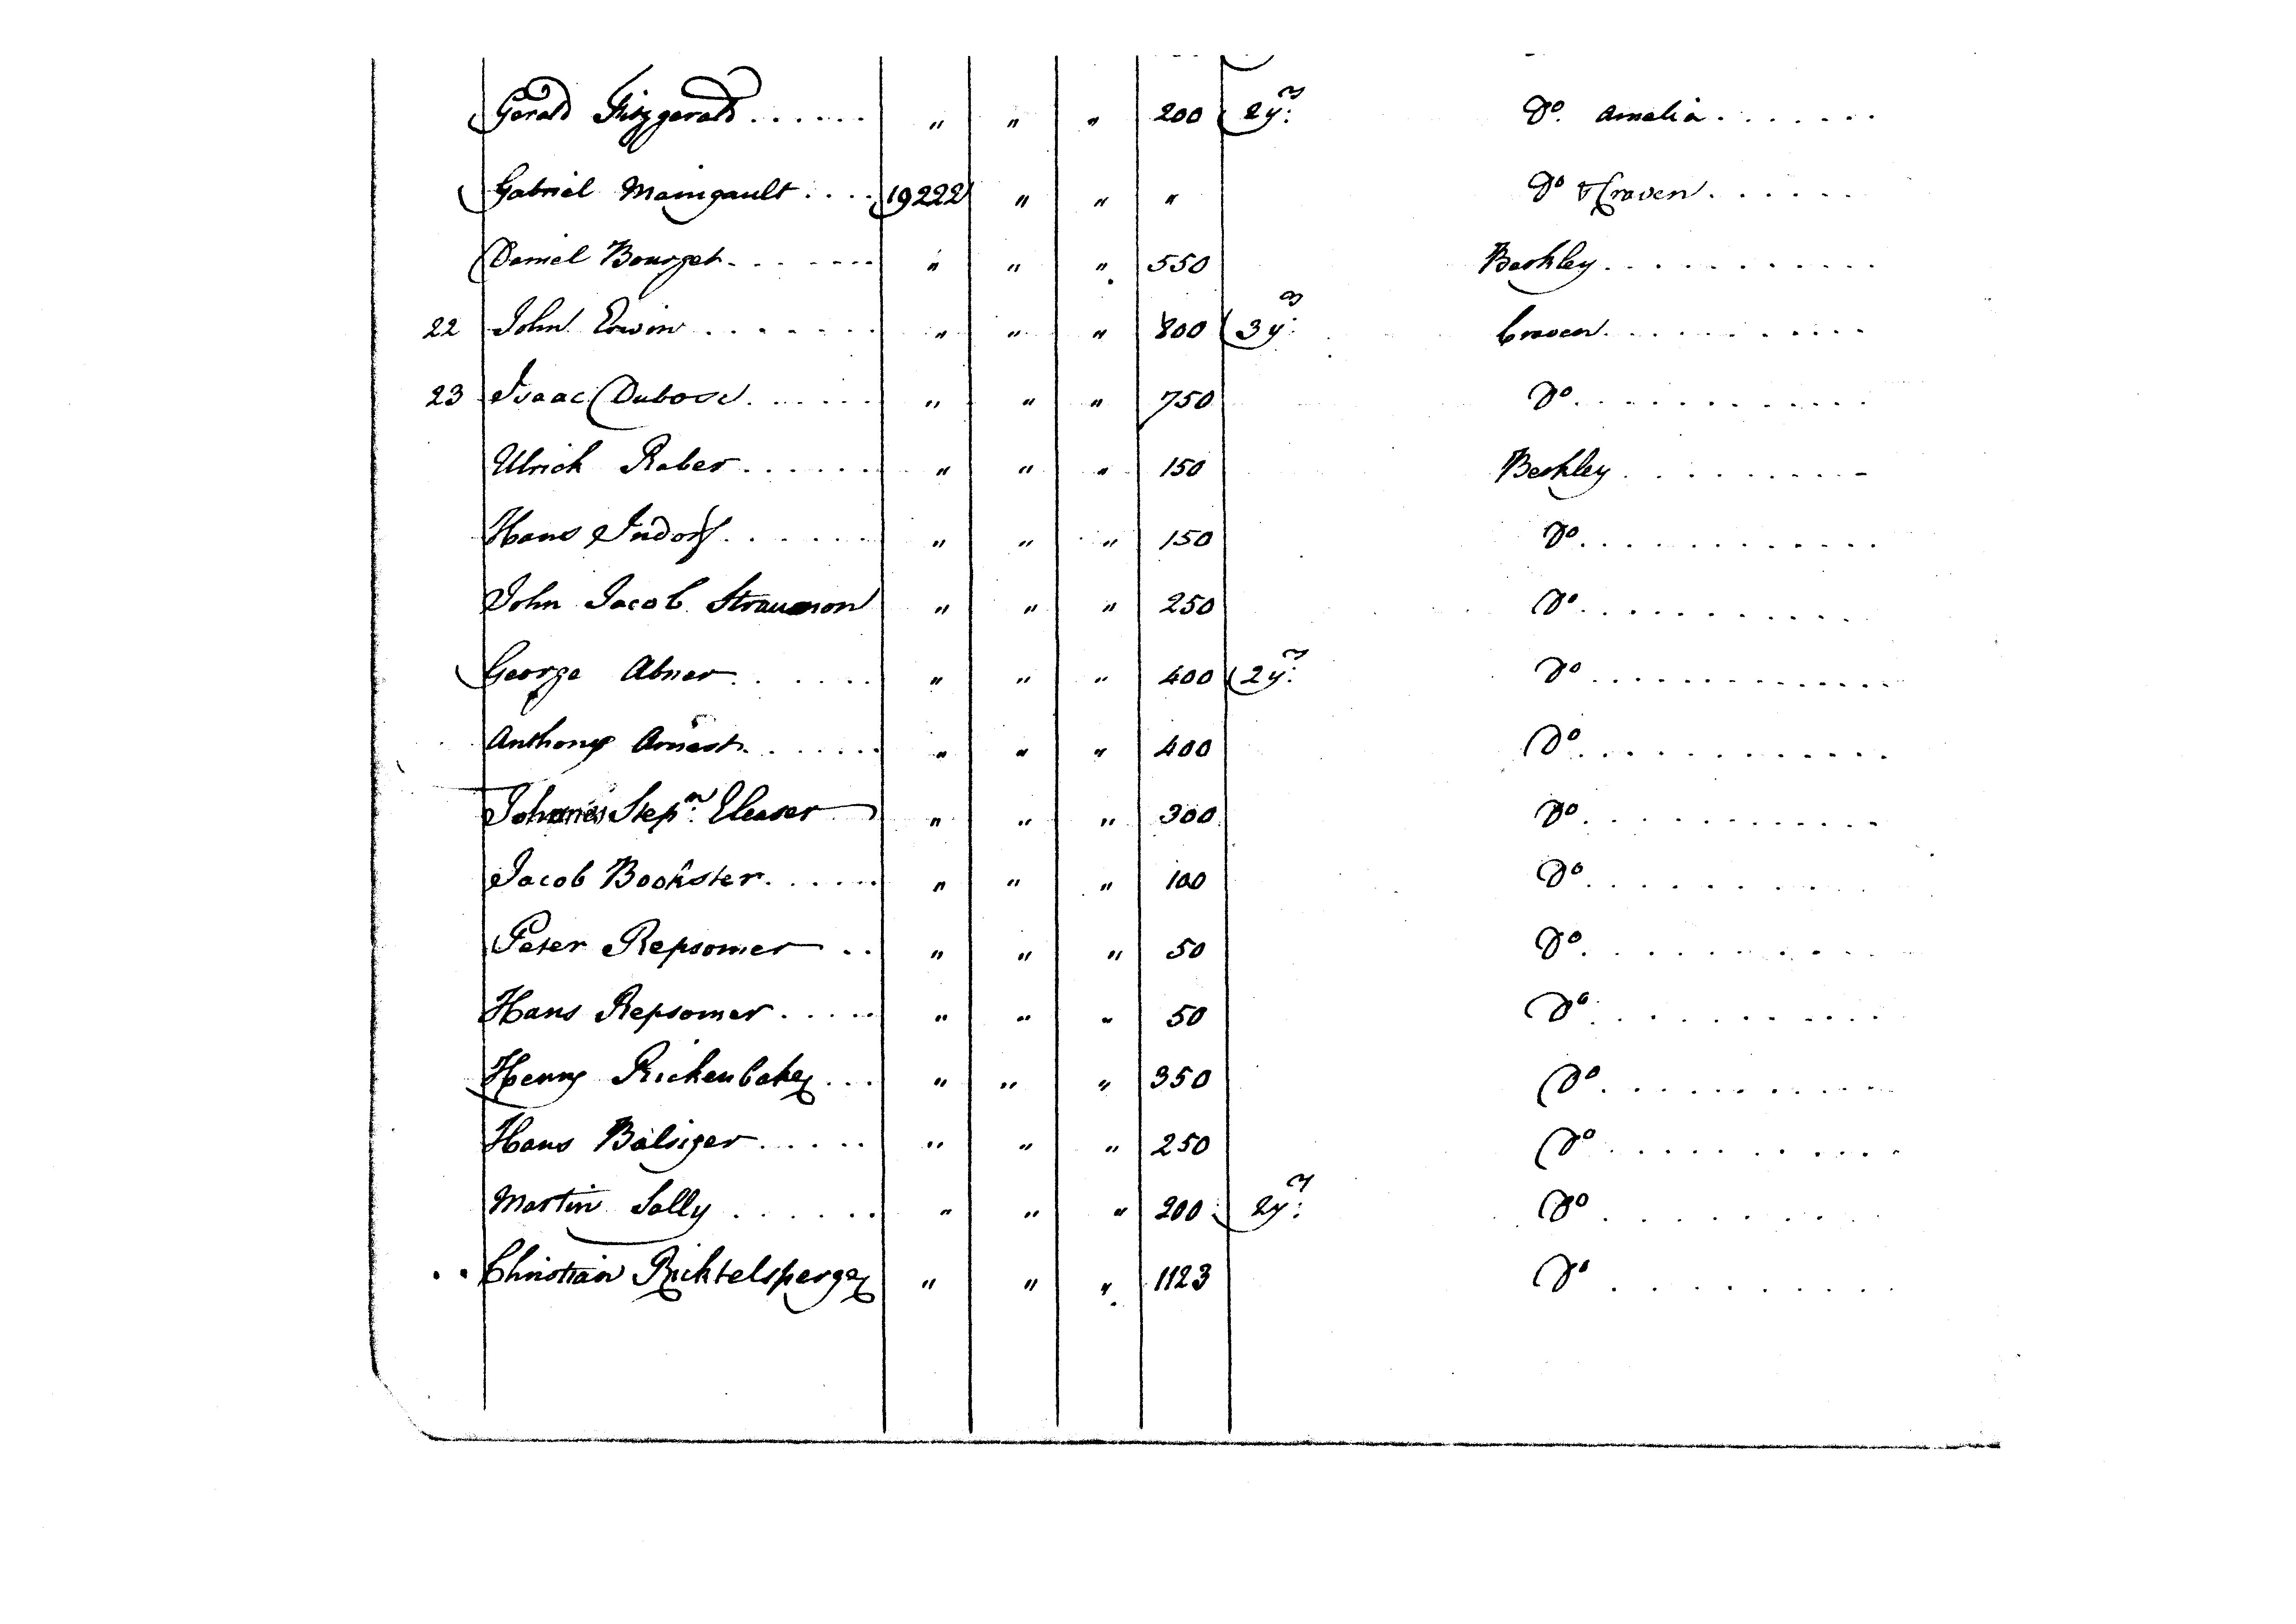 Gerald Fitzgerald ...... " " " 200 2y:rs Do. Amelia .......
Gabriel Manigault .... 19222 " " " Do & Craven ......
Daniel Bourget ....... " " " 550 Berkley ...........
22 John Erwin ....... " " " 800 3y:rs Craven ..........
23 Isaac Dubose ...... " " " 750 Do ............
Ulrich Raber ...... " " " 150 Berkley .........
Hans Indorf ...... " " " 150 Do ............
John Jacob Strauman " " " 250 Do ...........
George Abner ...... " " " 400 2y:rs Do ..............
Anthony Arnest ....... " " " 400 Do ............
Johannes Step:n Eleaser " " " 300 Do ............
Jacob Bookster ...... " " " 100 Do ..........
Peter Repsomer .. " " " 50 Do ..........
Hans Repsomer ..... " " " 50 Do ...........
Henry Rickenbaker ... " " " 350 Do ..........
Hans Balsiger ..... " " " 250 Do ...........
Martin Sally ...... " " " 200 2y:rs Do .........
Christian Richtelsperger " " " 1123 Do .........